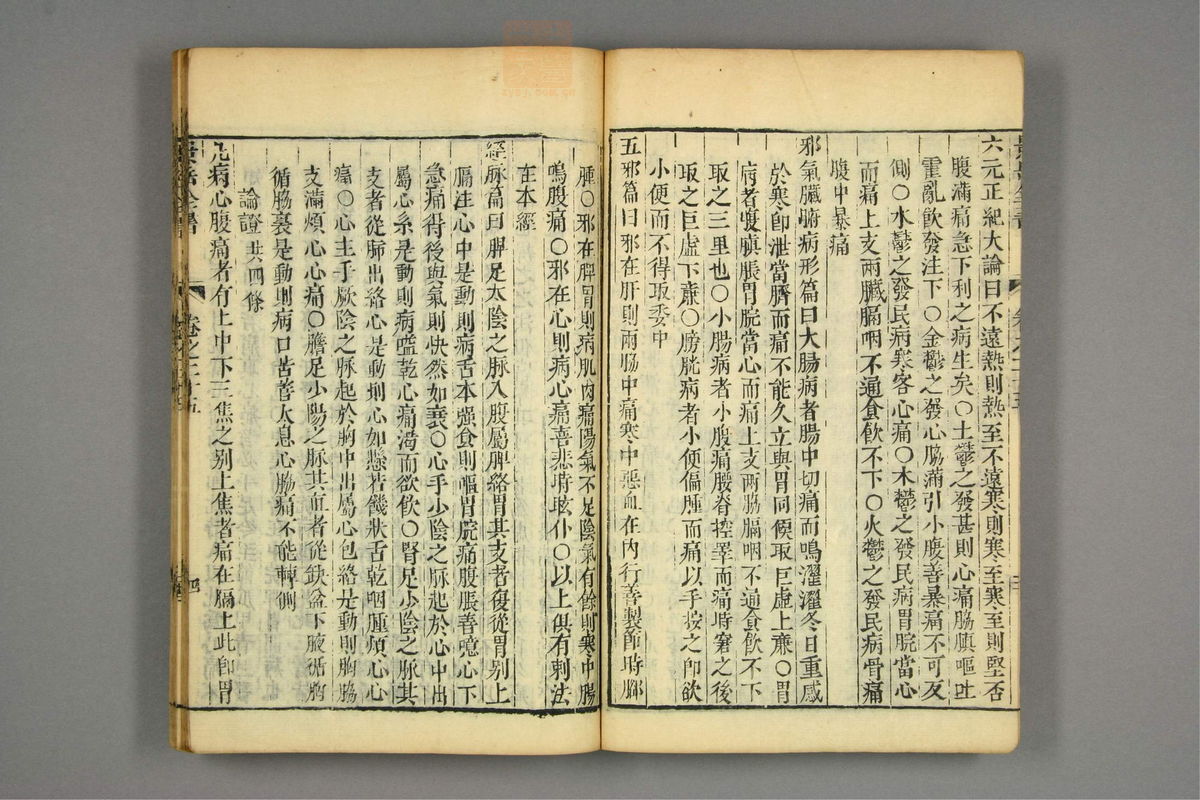 六元正紀大論曰不遠熱則熱至不遠寒則寒至寒至則堅否
腹滿痛急下利之病生矣○土鬱之發甚則心痛脇䐜嘔吐
霍亂飲發注下○金鬱之發心脇滿引小腹善暴痛不可反
側○水鬱之發民病寒客心痛○木鬱之發民病胃脘當心
而痛上支兩脇膈咽不通食飲不下○火鬱之發民病骨痛
腹中暴痛
邪氣臟腑病形篇曰大腸病者腸中切痛而鳴濯濯冬日重感
於寒卽泄當臍而痛不能久立與胃同候取巨虛上廉○胃
病者腹䐜脹胃脘當心而痛上支兩脇膈咽不通食飲不下
取之三里也○小腸病者小腹痛腰脊控睪而痛時窘之後
取之巨虛下廉○膀胱病者小便偏腫而痛以手按之卽欲
小便而不得取委中
五邪篇曰邪在肝則兩脇中痛寒中惡血在內行善掣節時腳
腫○邪在脾胃則病肌肉痛陽氣不足陰氣有餘則寒中腸
鳴腹痛○邪在心則病心痛喜悲時眩仆○以上俱有刺法
在本經
經脉篇曰脾足太陰之脉入腹屬脾絡胃其支者復從胃别上
膈注心中是動則病舌本强食則嘔胃脘痛腹脹善噫心下
急痛得後與氣則快然如衰○心手少陰之脉起於心中出
屬心系是動則病嗌乾心痛渴而欲飲○腎足少陰之脉其
支者從肺出絡心是動則心如懸若饑狀舌乾咽腫煩心心
痛○心主手厥陰之脉起於胸中出屬心包絡是動則胸脇
支滿煩心心痛○膽足少陽之脉其直者從缺盆下腋循胸
循脇裏是動則病口苦善大息心脇痛不能轉側
論證共四條
凡病心腹痛者有上中下三焦之别上焦者痛在膈上此卽胃
景岳全書
卷之二十五
四